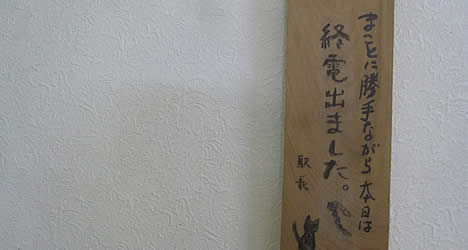 まことに勝手ながら本日は
終電出ました。
駅長